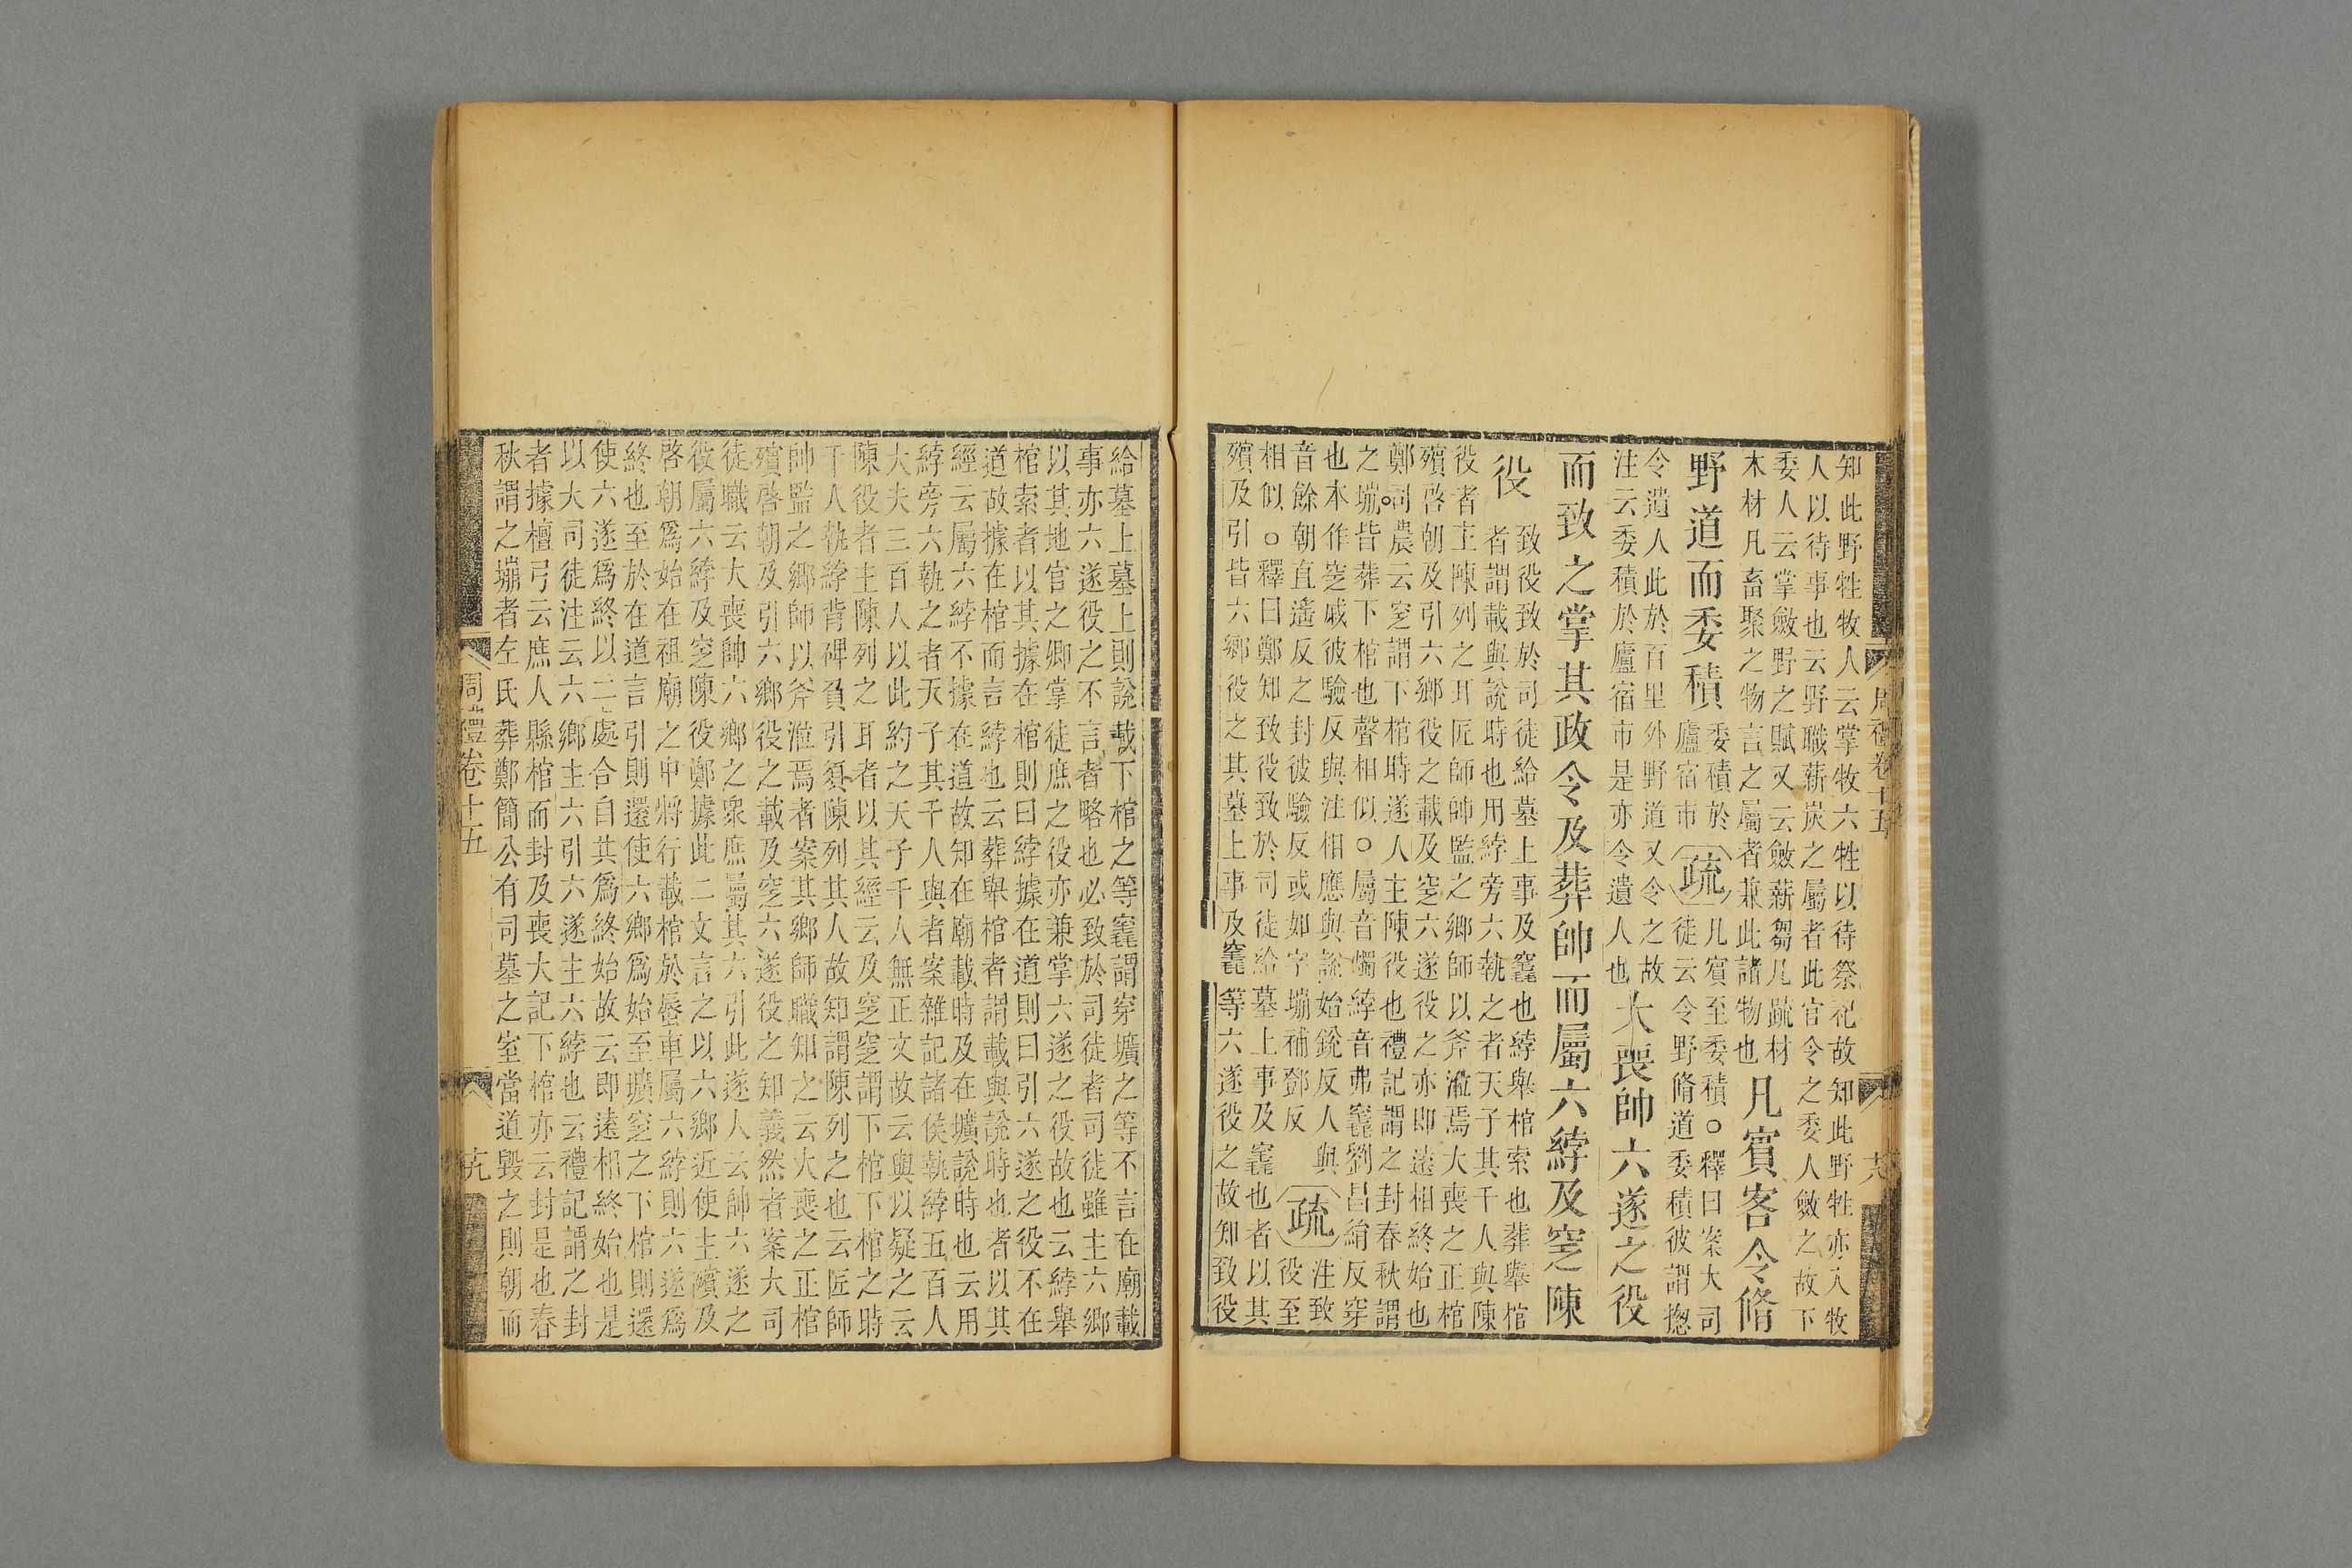 知此野牲牧人云掌牧六牲以待祭祀故知此野牲亦入牧
人以待事也云野職薪炭之屬者此官令之委人斂之故下
委人云掌斂野之賦又云斂薪芻凡疏材
木材凡畜聚之物言之屬者兼此諸物也
凡賓客令脩
野道而委積
委積於
廬宿市
疏
凡賓至委積○釋曰案大司
徒云令野脩道委積彼謂揔
令遺人此於百里外野道又令之故
注云委積於廬宿市是亦令遺人也
大喪帥六遂之役
而致之掌其政令及葬帥而屬六綍及窆陳
役
致役致於司徒給墓上事及竁也綍舉棺索也葬舉棺
者謂載與說時也用綍旁六執之者天子其千人與陳
役者主陳列之耳匠師帥監之鄉師以斧涖焉大喪之正棺
殯啓朝及引六鄉役之載及窆六遂役之亦即遠相終始也
鄭司農云窆謂下棺時遂人主陳役也禮記謂之封春秋謂
之塴皆葬下棺也聲相似○屬音燭綍音弗竁劉昌絹反穿
也本作窆戚彼驗反與注相應與說始銳反人與
音餘朝直遙反之封彼驗反或如字塴補鄧反
疏
注致
役至
相似○釋曰鄭知致役致於司徒給墓上事及竁也者以其
殯及引皆六鄉役之其墓上事及竁等六遂役之故知致役
周禮卷十五
六
給墓上墓上則說載下棺之等竁謂穿壙之等不言在廟載
事亦六遂役之不言者略也必致於司徒者司徒雖主六鄉
以其地官之卿掌徒庶之役亦兼掌六遂之役故也云綍舉
棺索者以其據在棺則曰綍據在道則曰引六遂之役不在
道故據在棺而言綍也云葬舉棺者謂載與說時也者以其
經云屬六綍不據在道故知在廟載時及在壙說時也云用
綍旁六執之者天子其千人與者案雜記諸侯執綍五百人
大夫三百人以此約之天子千人無正文故云與以疑之云
陳役者主陳列之耳者以其經云及窆窆謂下棺下棺之時
千人執綍背碑負引須陳列其人故知謂陳列之也云匠師
帥監之鄉師以斧涖焉者案其鄉師職知之云大喪之正棺
殯啓朝及引六鄉役之載及窆六遂役之知義然者案大司
徒職云大喪帥六鄉之衆庶屬其六引此遂人云帥六遂之
役屬六綍及窆陳役鄭據此二文言之以六鄉近使主殯及
啓朝爲始在祖廟之中將行載棺於蜃車屬六綍則六遂爲
終也至於在道言引則還使六鄉爲始至壙窆之下棺則還
使六遂爲終以二處合自其爲終始故云即遠相終始也是
以大司徒注云六鄉主六引六遂主六綍也云禮記謂之封
者據檀弓云庶人縣棺而封及喪大記下棺亦云封是也春
秋謂之塴者左氏葬鄭簡公有司墓之室當道毀之則朝而
周禮卷十五